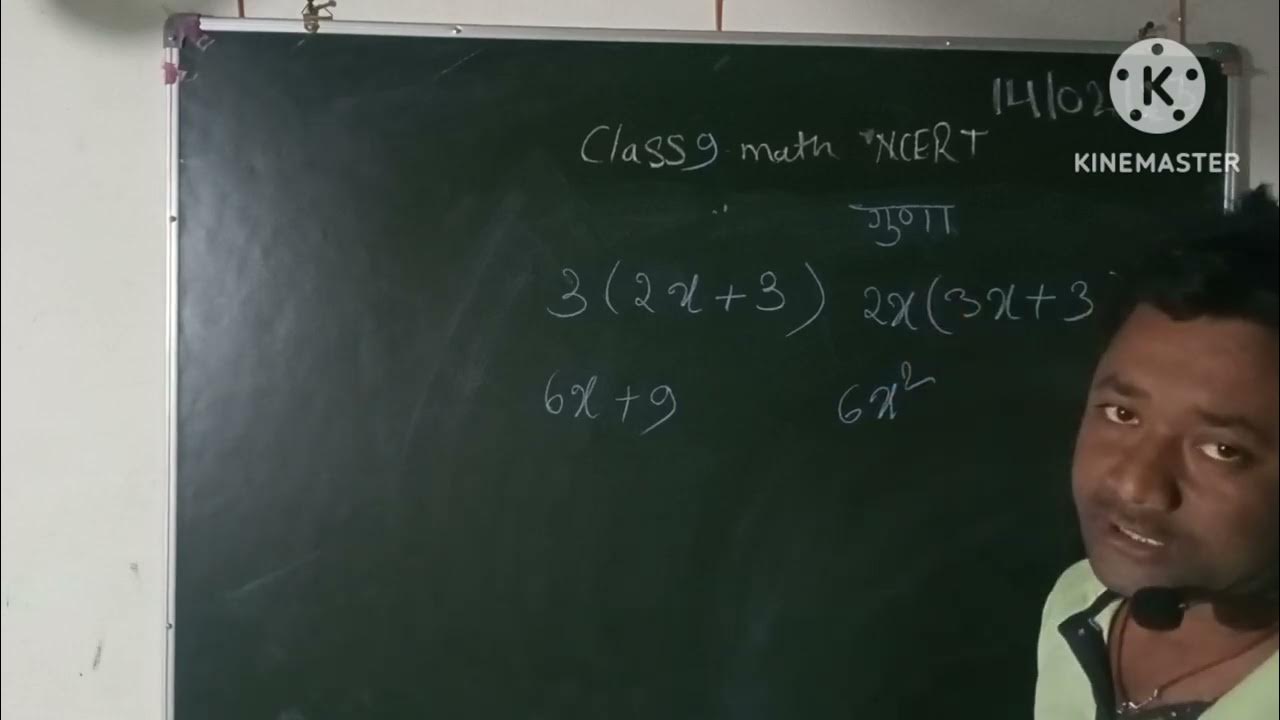 14/02
K
KINEMASTER
Class 9 math NCERT
गुणा
3(2x+3) 2x(3x+3
6x+9 6x²